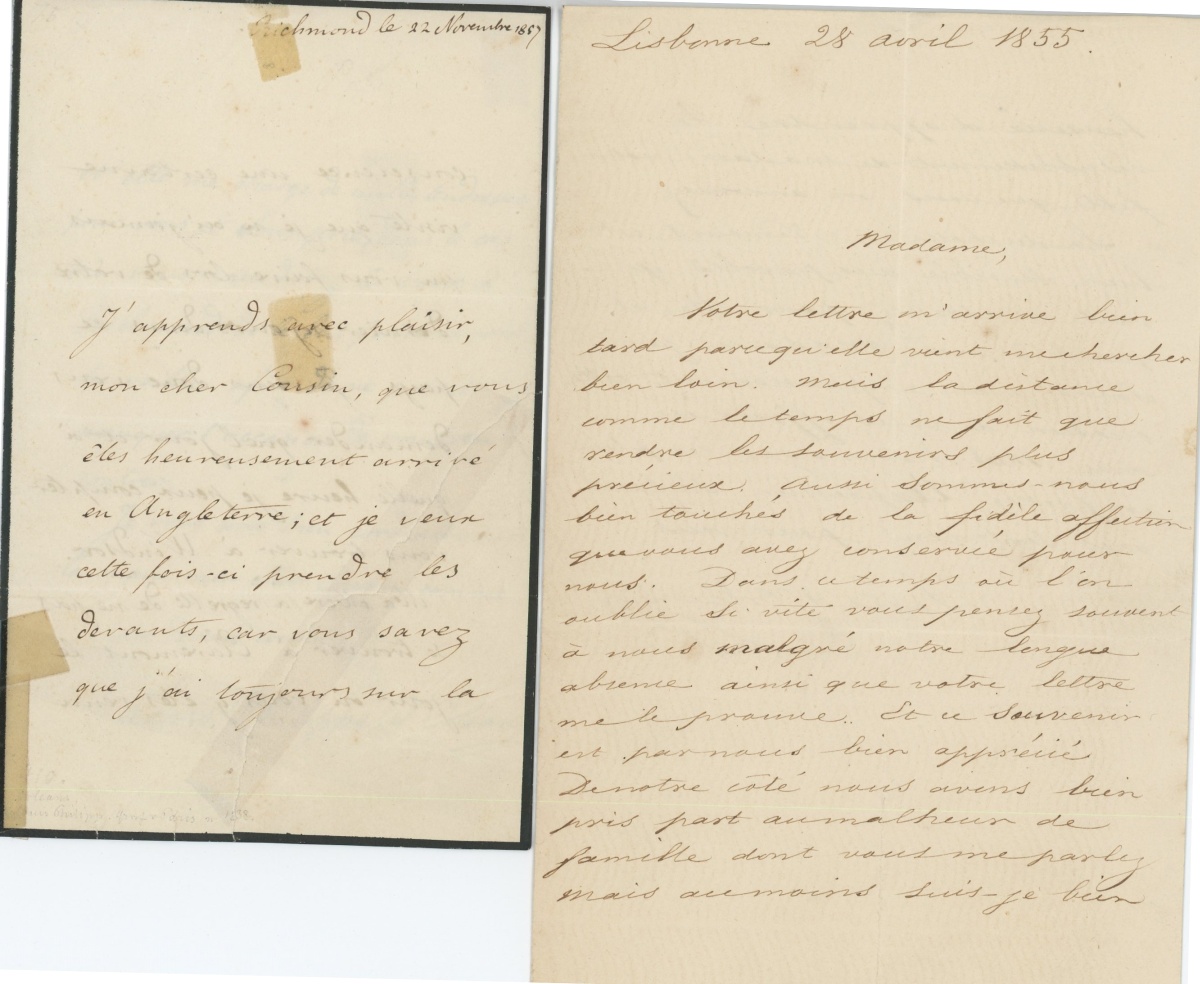 Richmond le 22 Novembre 1857
J'apprends avec plaisir,
mon cher Cousin, que vous
êtes heureusement arrivé
en Angleterre; et je veux
cette fois-ci prendre les
devants, car vous savez
que j'ai toujours sur la
Lisbonne 28 avril 1855.
Madame,
Votre lettre m'arrive bien
tard parcequ'elle vient me chercher
bien loin. Mais la distance
comme le temps ne fait que
rendre les souvenirs plus
précieux. Aussi sommes-nous
bien touchés de la fidèle affection
que vous avez conservée pour
nous. Dans ce temps où l'on
oublie si vite vous pensez souvent
à nous malgré notre longue
absence ainsi que votre lettre
me le prouve. Et ce souvenir
est par nous bien apprécié
De notre côté nous avons bien
pris part au malheur de
famille dont vous me parlez
mais au moins suis-je bien